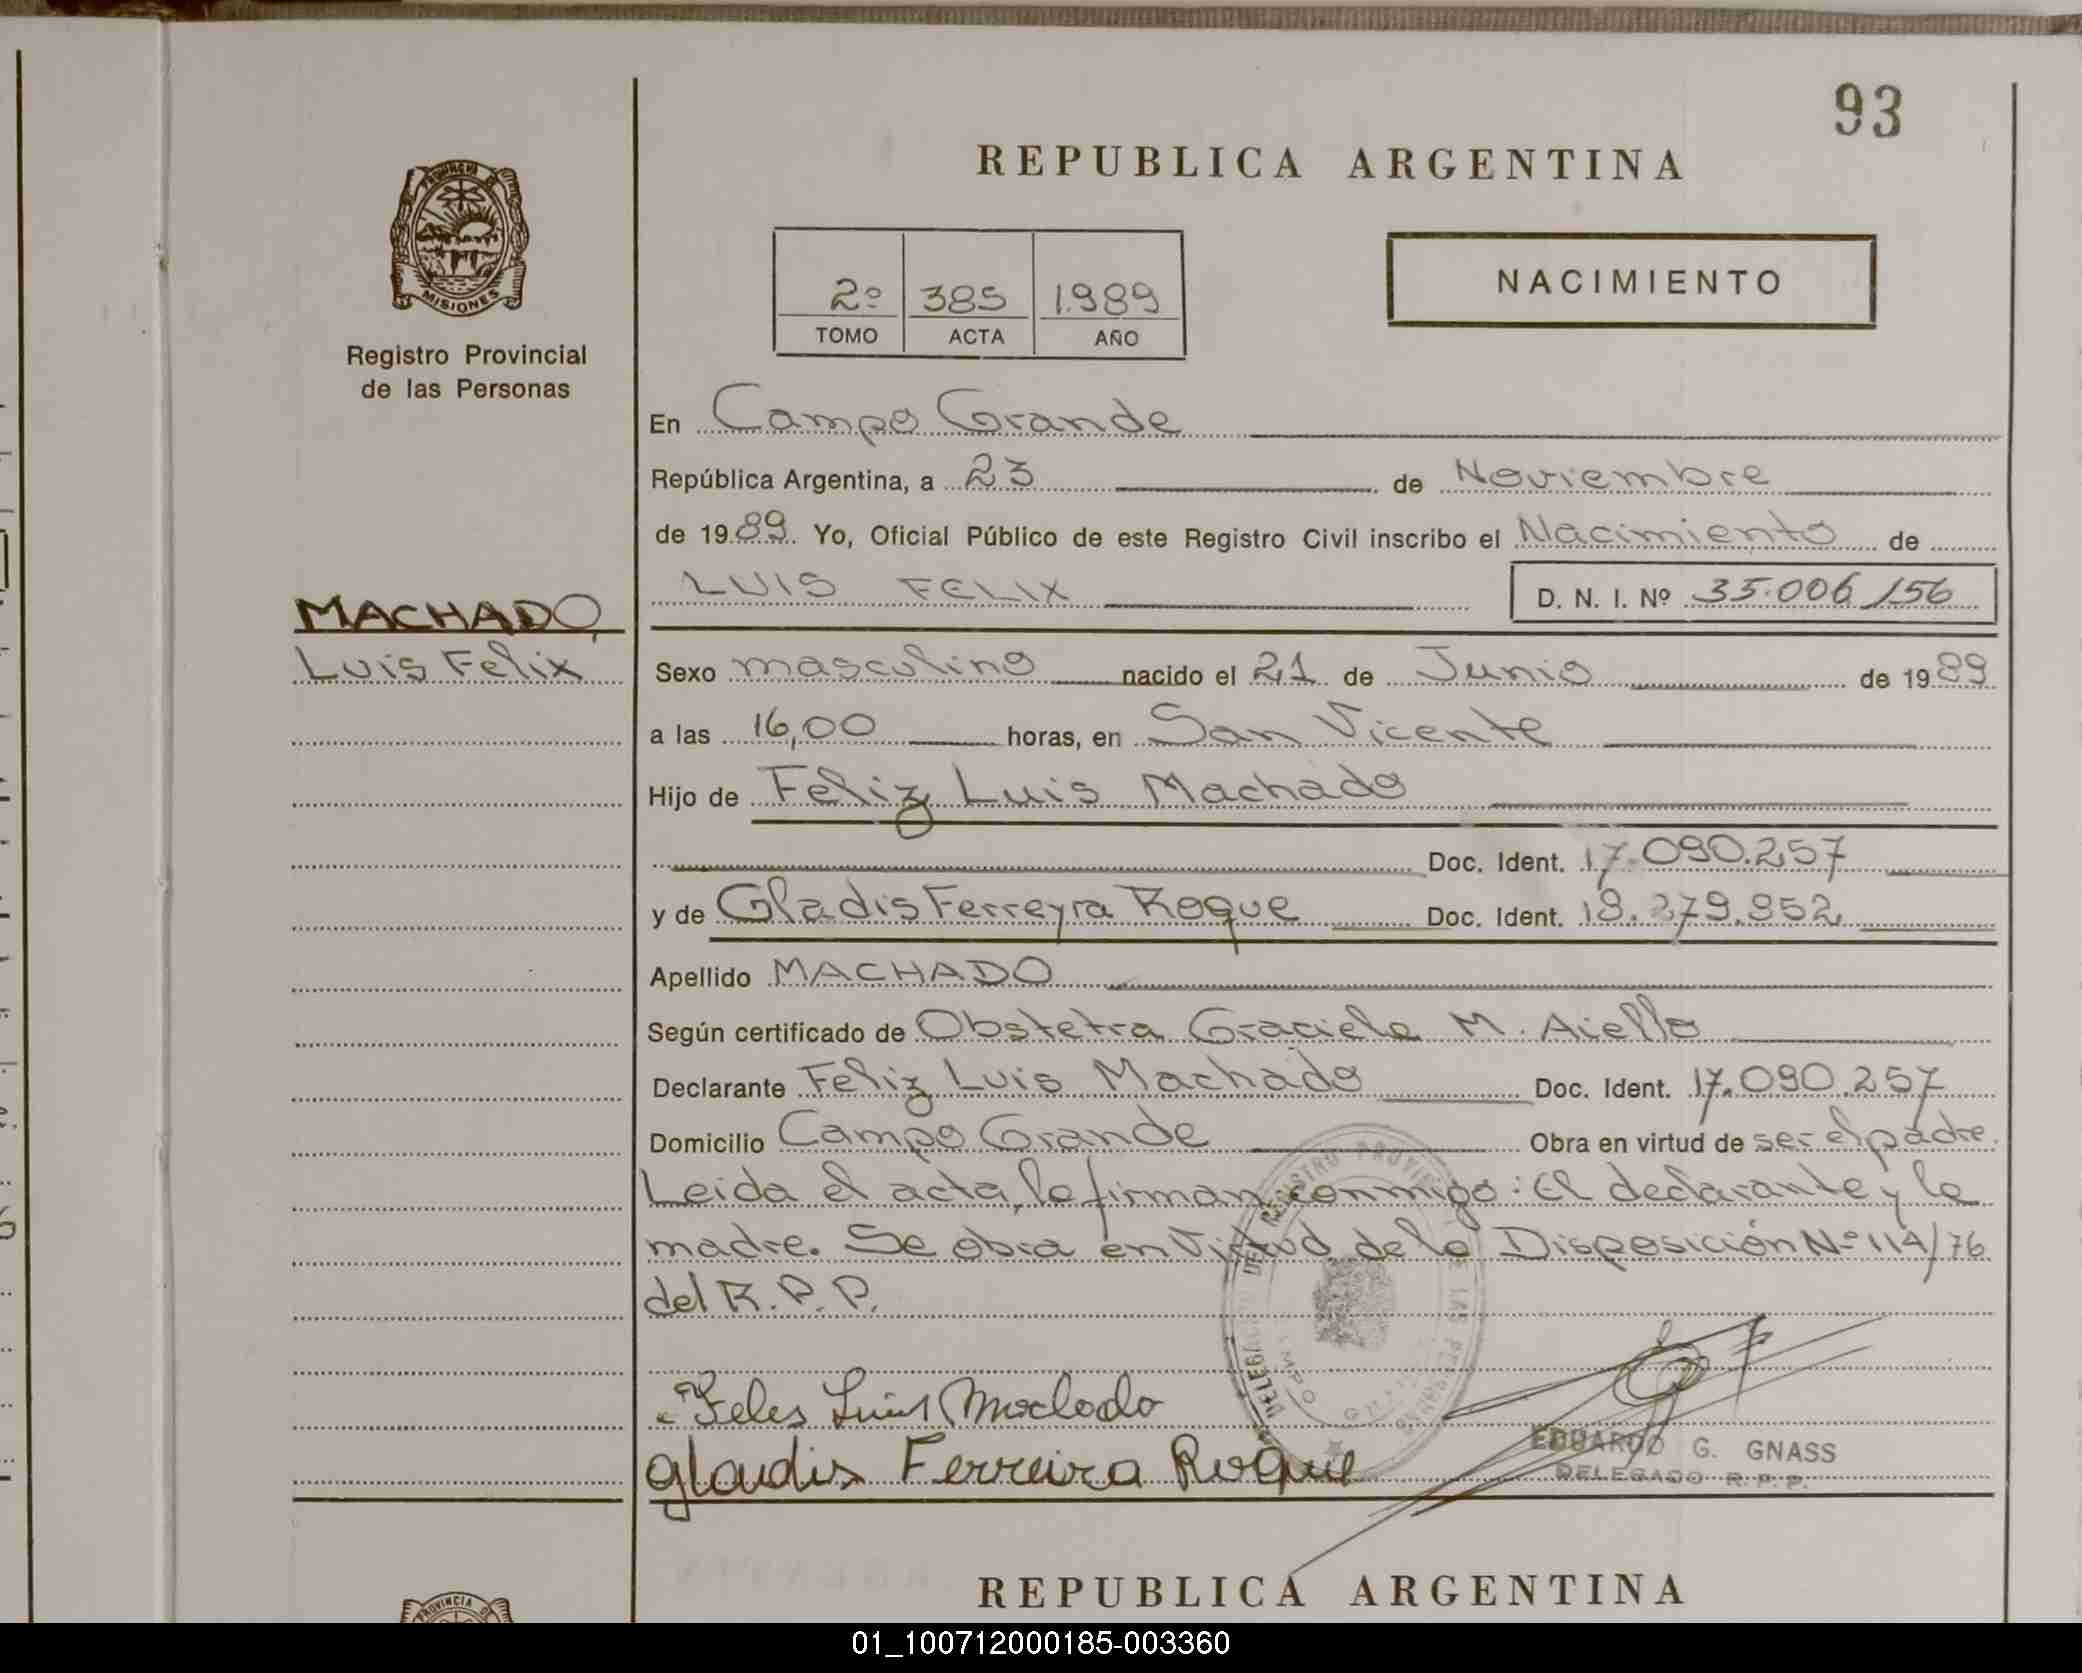 93
REPUBLICA ARGENTINA
PROVINCIA DE
MISIONES
Registro Provincial
de las Personas
2º 385 1.989
TOMO ACTA AÑO
NACIMIENTO
En Campo Grande
República Argentina, a 23 de Noviembre
de 1989. Yo, Oficial Público de este Registro Civil inscribo el Nacimiento de
LUIS FELIX D. N. I. Nº 35.006156
MACHADO,
Luis Felix
Sexo masculino nacido el 21 de Junio de 1989
a las 16,00 horas, en San Vicente
Hijo de Feliz Luis Machado
Doc. Ident. 17.090.257
y de Gladis Ferreyra Roque Doc. Ident. 18.279.952
Apellido MACHADO
Según certificado de Obstetra Graciela M. Aiello
Declarante Feliz Luis Machado Doc. Ident. 17.090.257
Domicilio Campo Grande Obra en virtud de ser el padre.
Leida el acta, la firman conmigo: El declarante y la
madre. Se obra en Virtud de la Disposición Nº 114/76
del R.P.P.
Luis Machado
gladis Ferreira Roque
EDUARDO G. GNASS
DELEGADO R. P. P.
REPUBLICA ARGENTINA
PROVINCIA D
01_100712000185-003360